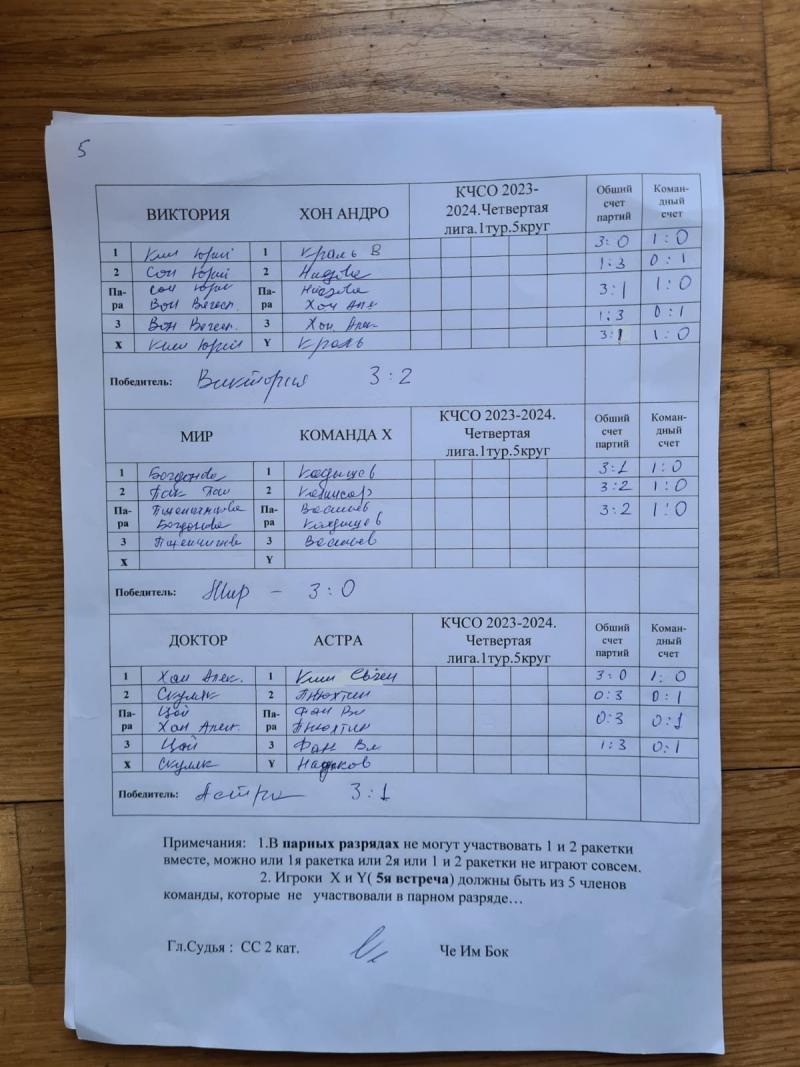 5
ВИКТОРИЯ ХОН АНДРО КЧСО 2023-2024.Четвертая лига.1тур.5круг Общий счет партий Коман-дный счет
1 Ким Юрий 1 Краль В 3:0 1:0
2 Сон Юрий 2 1:3 0:1
Па-ра Сон Юрий Па-ра 3:1 1:0
Вон Вячесл. Хон Алек
3 Вон Вячесл. 3 Хон Алек 1:3 0:1
X Ким Юрий Y Краль 3:1 1:0
Победитель: Виктория 3:2
МИР КОМАНДА X КЧСО 2023-2024. Четвертая лига.1тур.5круг Общий счет партий Коман-дный счет
1 Богданова 1 3:1 1:0
2 Пак 2 3:2 1:0
Па-ра Па-ра 3:2 1:0
Богданова
3 3
X Y
Победитель: Мир - 3:0
ДОКТОР АСТРА КЧСО 2023-2024. Четвертая лига.1тур.5круг Общий счет партий Коман-дный счет
1 Хан Алек. 1 Ким 3:0 1:0
2 2 Пнюхтин 0:3 0:1
Па-ра Цой Па-ра Фан Вл 0:3 0:1
Хан Алек. Пнюхтин
3 Цой 3 Фан Вл 1:3 0:1
X Y
Победитель: Астра 3:1
Примечания: 1.В парных разрядах не могут участвовать 1 и 2 ракетки
вместе, можно или 1я ракетка или 2я или 1 и 2 ракетки не играют совсем.
2. Игроки X и Y( 5я встреча) должны быть из 5 членов
команды, которые не участвовали в парном разряде…
Гл.Судья : СС 2 кат. Че Им Бок